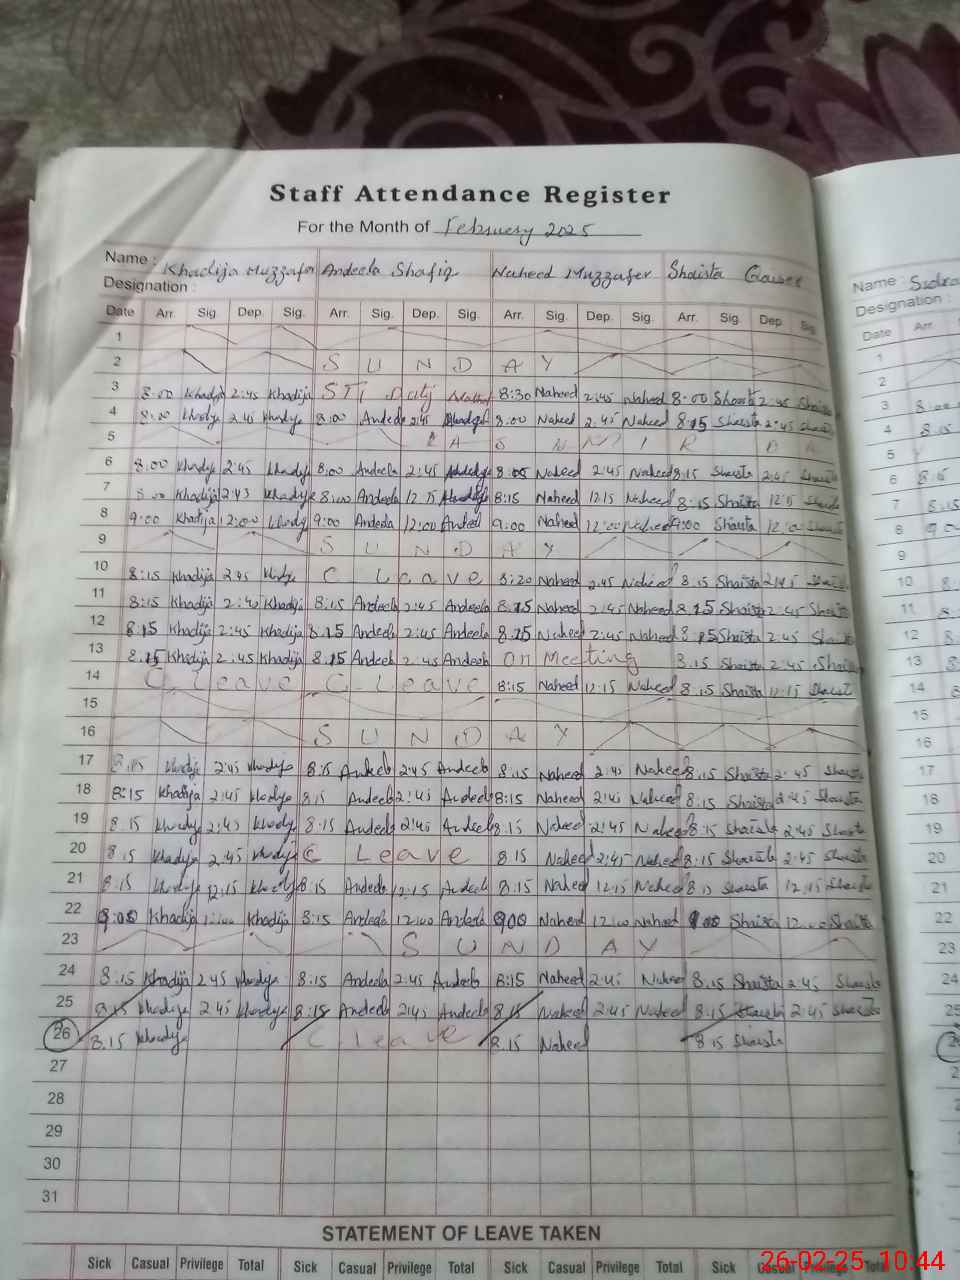 Staff Attendance Register
For the Month of February 2025
Name : Khadija Muzzafer Andeela Shafiq Naheed Muzzafer Shaista Name :
Designation : Designation :
Date Arr. Sig. Dep. Sig. Arr. Sig. Dep. Sig. Arr. Sig. Dep. Sig. Arr. Sig. Dep Sig. Date Arr.
1 1
2 S U N D A Y 2
3 8:00 Khadija 2:45 Khadija 8:30 Naheed 2:45 Naheed 8:00 Shaista 2:45 Shaista 3
4 8:00 Khadija 2:45 Khadija 8:00 Andeela 2:45 8:00 Naheed 2:45 Naheed 8:15 Shaista 2:45 Shaista 4 8:15
5 5
6 8:00 Khadija 2:45 Khadija 8:00 Andeela 2:45 8:05 Naheed 2:45 Naheed 8:15 Shaista 2:45 Shaista 6
7 8:00 Khadija 2:45 Khadija 8:00 Andeela 12:15 8:15 Naheed 12:15 Naheed 8:15 Shaista 12:15 Shaista 7 8:15
8 9:00 Khadija 12:00 Khadija 9:00 Andeela 12:00 Andeela 9:00 Naheed 12:00 Naheed 9:00 Shaista 12:00 Shaista 8
9 S U N D A Y 9
10 8:15 Khadija 2:45 Khadija C Leave 8:20 Naheed 2:45 Naheed 8:15 Shaista 2:45 Shaista 10
11 8:15 Khadija 2:45 Khadija 8:15 Andeela 2:45 Andeela 8:15 Naheed 2:45 Naheed 8:15 Shaista 2:45 Shaista 11
12 8:15 Khadija 2:45 Khadija 8:15 Andeela 2:45 Andeela 8:15 Naheed 2:45 Naheed 8:15 Shaista 2:45 Shaista 12
13 8:15 Khadija 2:45 Khadija 8:15 Andeela 2:45 Andeela On Meeting 8:15 Shaista 2:45 Shaista 13
14 C. Leave C. Leave 8:15 Naheed 12:15 Naheed 8:15 Shaista 12:15 Shaista 14
15 15
16 S U N D A Y 16
17 8:15 Khadija 2:45 Khadija 8:15 Andeela 2:45 Andeela 8:15 Naheed 2:45 Naheed 8:15 Shaista 2:45 Shaista 17
18 8:15 Khadija 2:45 Khadija 8:15 Andeela 2:45 Andeela 8:15 Naheed 2:45 Naheed 8:15 Shaista 2:45 Shaista 18
19 8:15 Khadija 2:45 Khadija 8:15 Andeela 2:45 Andeela 8:15 Naheed 2:45 Naheed 8:15 Shaista 2:45 Shaista 19
20 8:15 Khadija 2:45 Khadija C Leave 8:15 Naheed 2:45 Naheed 8:15 Shaista 2:45 Shaista 20
21 8:15 Khadija 12:15 Khadija 8:15 Andeela 12:15 Andeela 8:15 Naheed 12:15 Naheed 8:15 Shaista 12:15 Shaista 21
22 9:00 Khadija 12:00 Khadija 8:15 Andeela 12:00 Andeela 9:00 Naheed 12:00 Naheed 9:00 Shaista 12:00 Shaista 22
23 S U N D A Y 23
24 8:15 Khadija 2:45 Khadija 8:15 Andeela 2:45 Andeela 8:15 Naheed 2:45 Naheed 8:15 Shaista 2:45 Shaista 24
25 8:15 Khadija 2:45 Khadija 8:15 Andeela 2:45 Andeela 8:15 Naheed 2:45 Naheed 8:15 Shaista 2:45 Shaista 25
26 8:15 Khadija C Leave 8:15 Naheed 8:15 Shaista
27
28
29
30
31
STATEMENT OF LEAVE TAKEN
Sick Casual Privilege Total Sick Casual Privilege Total Sick Casual Privilege Total Sick Casual Privilege Total
26-02-25 10:44